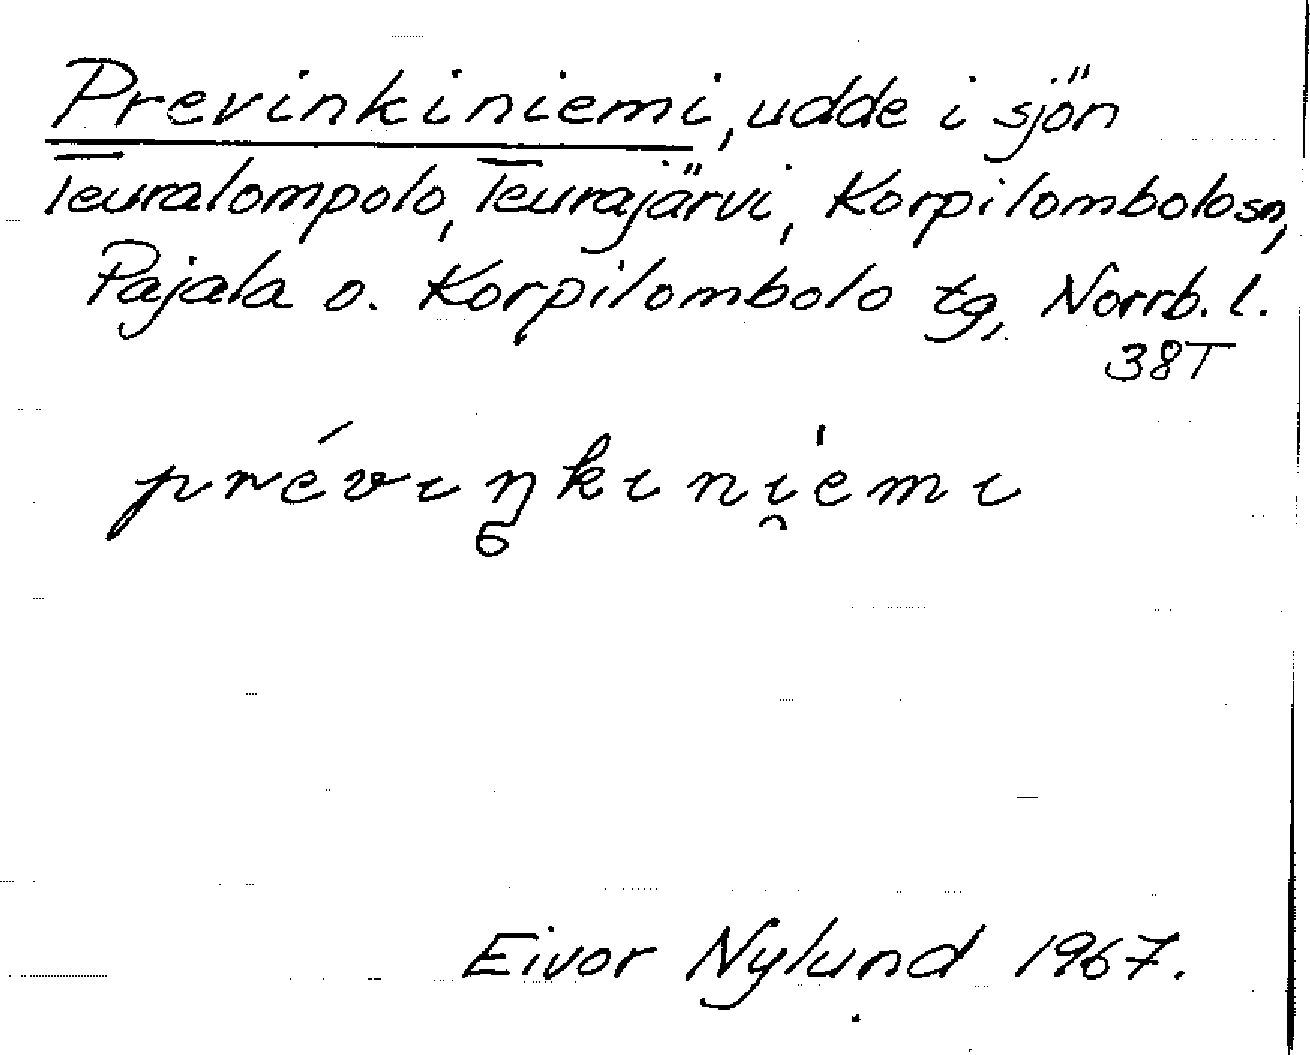 Previnkiniemi, udde i sjön
Teuralompolo, Teurajärvi, Korpilombolo sn,
Pajala o. Korpilombolo tg, Norrb. l.
38T
prévıŋkıni̯ˈemı
Eivor Nylund 1967.